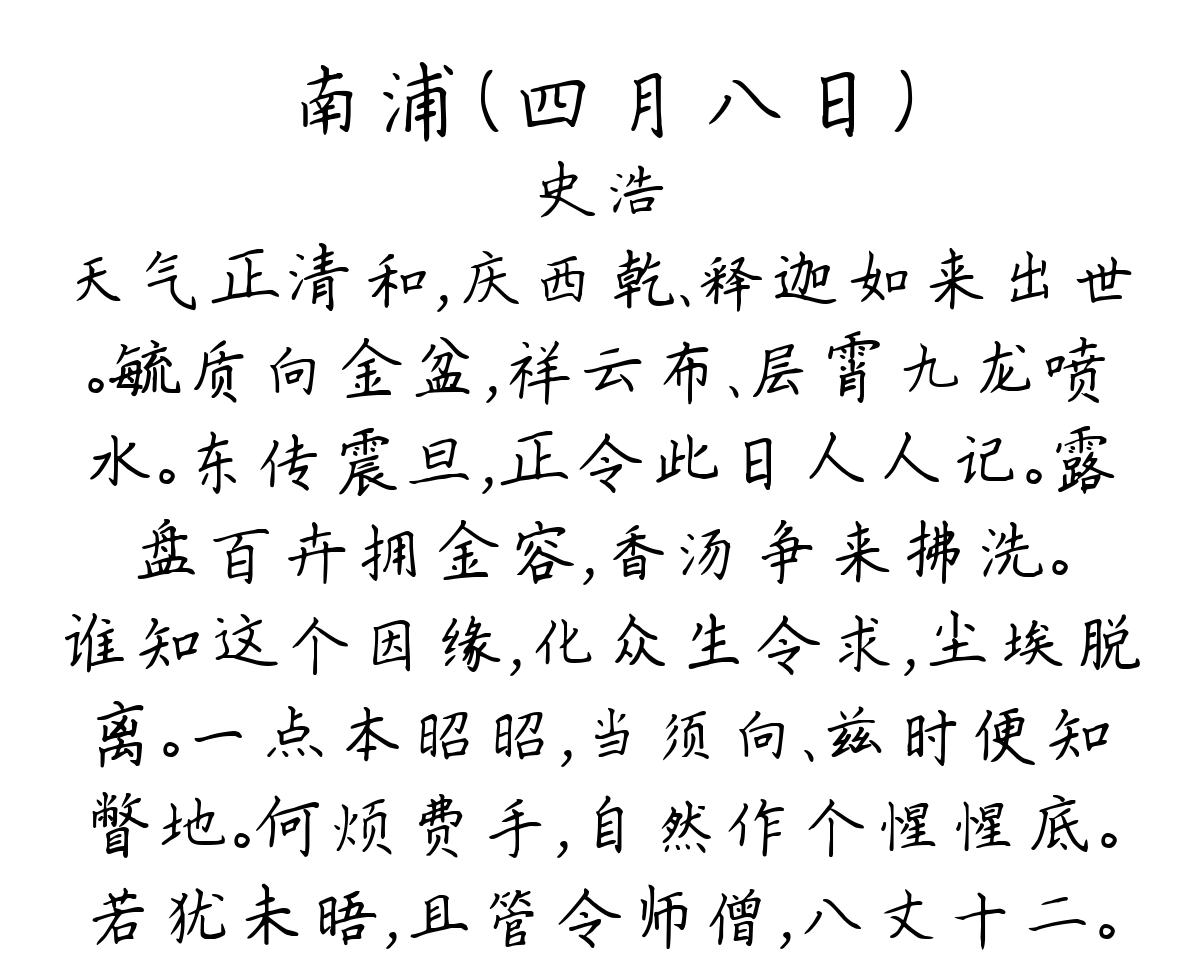 南浦(四月八日)
史浩
天气正清和,庆西乾、释迦如来出世
。毓质向金盆,祥云布、层霄九龙喷
水。东传震旦,正令此日人人记。露
盘百卉拥金容,香汤争来拂洗。
谁知这个因缘,化众生令求,尘埃脱
离。一点本昭昭,当须向、兹时便知
瞥地。何烦费手,自然作个惺惺底。
若犹未晤,且管令师僧,八丈十二。